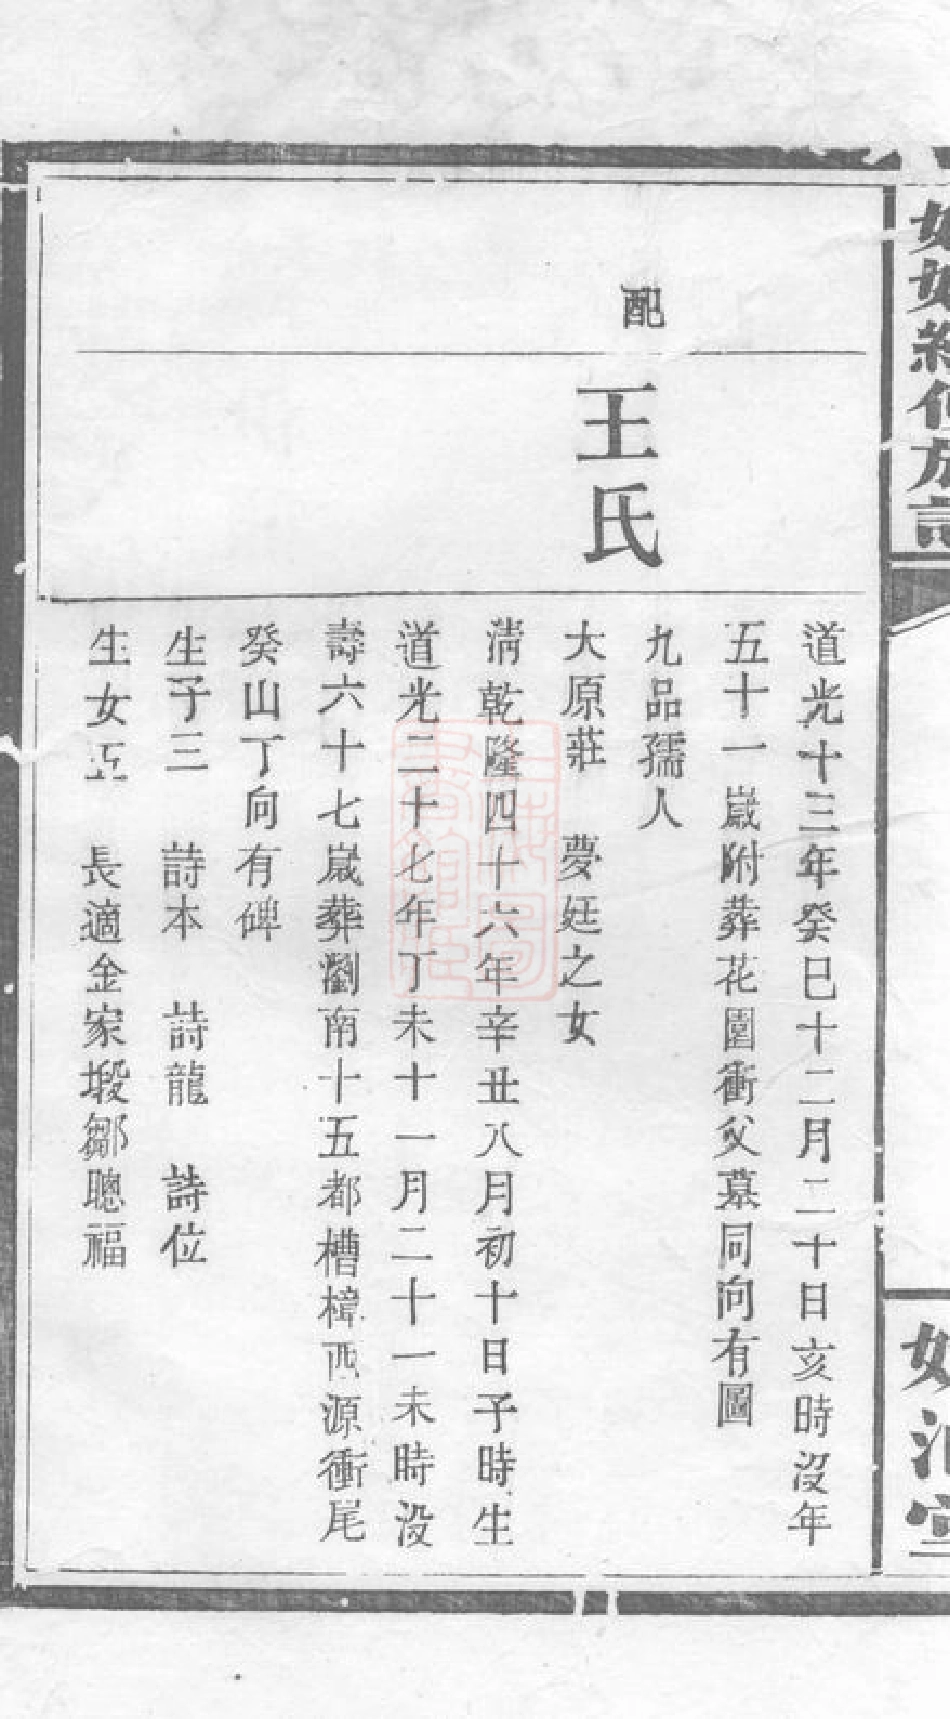 配
王氏
道光十三年癸巳十二月二十日亥時沒年
五十一嵗附葬花園衝父墓同向有圖
九品孺人
大原莊 夢廷之女
淸乾隆四十六年辛丑八月初十日子時生
道光二十七年丁未十一月二十一未時沒
壽六十七嵗葬瀏南十五都槽樟西源衝尾
癸山丁向有碑
生子三 詩本 詩龍 詩位
生女五 長適金家塅鄒聰福